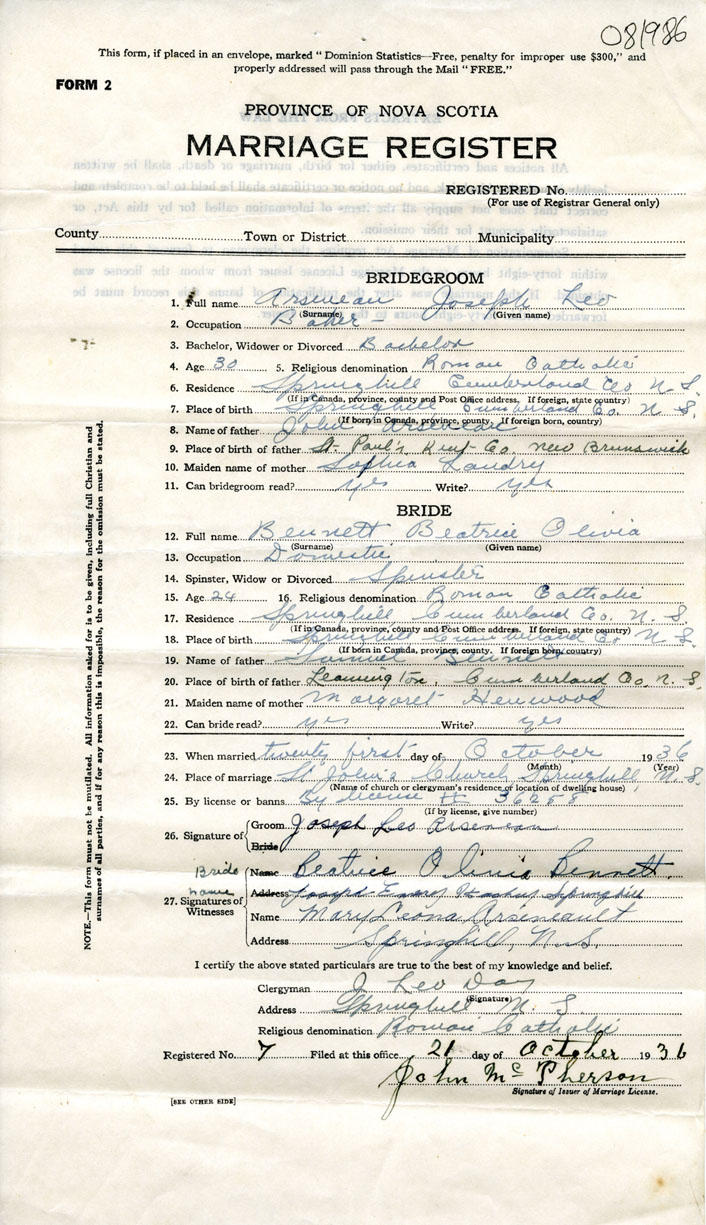 081986
This form, if placed in an envelope, marked "Dominion Statistics—Free, penalty for improper use $300," and
properly addressed will pass through the Mail "FREE."
FORM 2
PROVINCE OF NOVA SCOTIA
MARRIAGE REGISTER
REGISTERED No.
(For use of Registrar General only)
County Town or District Municipality
BRIDEGROOM
1. Full name Arseneau Joseph Leo
(Surname) (Given name)
2. Occupation Baker
3. Bachelor, Widower or Divorced Bachelor
4. Age 30 5. Religious denomination Roman Catholic
6. Residence Springhill Cumberland Co. N. S.
(If in Canada, province, county and Post Office address. If foreign, state county)
7. Place of birth Springhill Cumberland Co. N. S.
(If born in Canada, province, county. If foreign born, country)
8. Name of father John Arseneau
9. Place of birth of father St. Paul's, Kent Co. New Brunswick
10. Maiden name of mother Sophia Landry
11. Can bridegroom read? yes Write? yes
BRIDE
12. Full name Bennett Beatrice Olivia
(Surname) (Given name)
13. Occupation Domestic
14. Spinster, Widow or Divorced Spinster
15. Age 24 16. Religious denomination Roman Catholic
17. Residence Springhill Cumberland Co. N. S.
(If in Canada, province, county and Post Office address. If foreign, state country)
18. Place of birth Springhill Cumberland Co. N. S.
(If born in Canada, province, county. If foreign born, country)
19. Name of father Samuel Bennett
20. Place of birth of father Leamington, Cumberland Co. N. S.
21. Maiden name of mother Margaret Henwood
22. Can bride read? yes Write? yes
23. When married twenty first day of October 1936
(Month) (Year)
24. Place of marriage St John's Church Springhill, N. S.
(Name of church or clergyman's residence or location of dwelling house)
25. By license or banns By license #
(If by license, give number)
26. Signature of Groom Joseph Leo Arseneau
Bride
Bride Name Beatrice Olivia Bennett
name Address Joseph Springhill
27. Signatures of Witnesses Name Mary Leona Arseneault
Address Springhill, N.S.
I certify the above stated particulars are true to the best of my knowledge and belief.
Clergyman J. Leo Day
(Signature)
Address Springhill N. S.
Religious denomination Roman Catholic
Registered No. 7 Filed at this office 21 day of October 1936
John McPherson
Signature of Issuer of Marriage License.
[SEE OTHER SIDE]
NOTE.—This form must not be mutilated. All information asked for is to be given, including full Christian and
surnames of all parties, and if for any reason this is impossible, the reason for the omission must be stated.